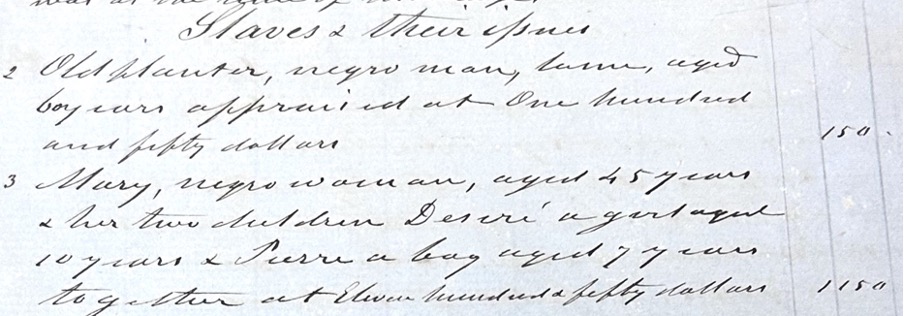 Slaves & their issues
2 Old planter, negro man, lame, aged
60 years appraised at One hundred
and fifty dollars 150.
3 Mary, negro woman, aged 45 years
& her two children Desiré a girl aged
10 years & Pierre a boy aged 7 years
together at Eleven hundred & fifty dollars 1150